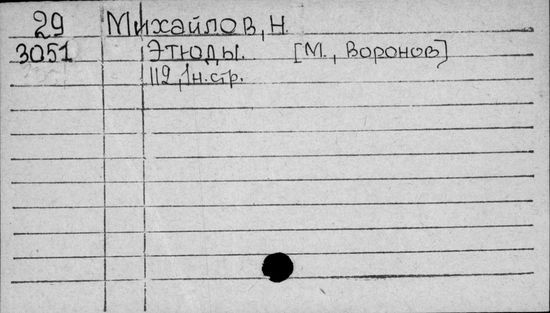 29 Михайлов, Н.
3051 Этюды. [М., Воронов]
112, 1н.стр.